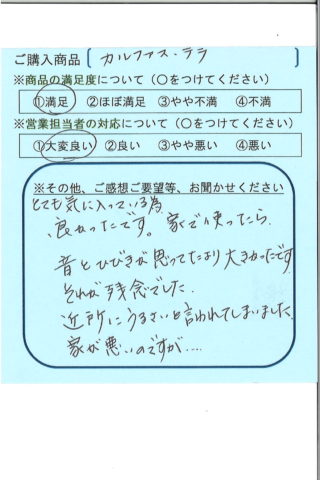 ご購入商品 カルファス・テラ
※商品の満足度について（○をつけてください）
①満足 ②ほぼ満足 ③やや不満 ④不満
※営業担当者の対応について（○をつけてください）
①大変良い ②良い ③やや悪い ④悪い
※その他、ご感想ご要望等、お聞かせください
とても気に入っている為
、良かったです。家で使ったら
音とひびきが思ってたより大きかったです
それが残念でした.
近所にうるさいと言われてしまいました.
家が悪いのですが....